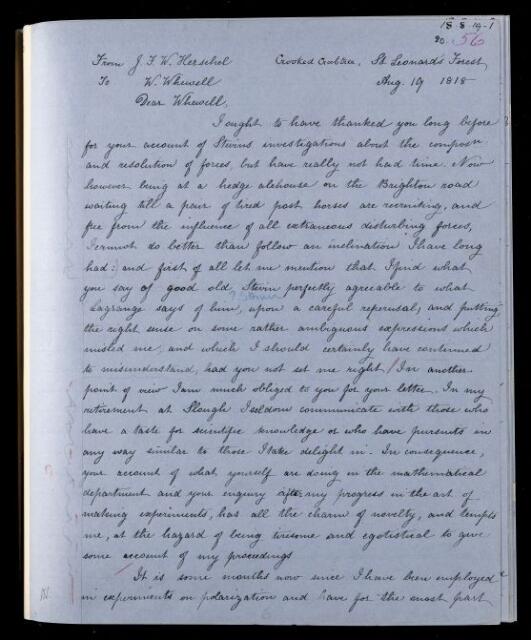 18-8-19-1
20. 56
From J. F. W. Herschel Crooked Crabtree, St Leonards Forest,
To W. Whewell Aug. 19 1818
Dear Whewell,
I ought to have thanked you long before
for your account of Stevins investigations about the composn
and resolution of forces, but have really not had time. Now
however being at a hedge alehouse on the Brighton road
waiting till a pair of tired post horses are recruiting, and
free from the influence of all extraneous disturbing forces,
I cannot do better than follow an inclination I have long
had: and first of all let me mention that I find what
you say of good old Stevin perfectly agreeable to what
? Stevin
Lagrange says of him, upon a careful reperusal, and putting
the right sense on some rather ambiguous expressions which
misled me, and which I should certainly have continued
to misunderstand, had you not set me right. In another
point of view I am much obliged to you for your letter. In my
retirement at Slough I seldom communicate with those who
have a taste for scientific knowledge or who have pursuits in
any way similar to those I take delight in. In consequence,
your account of what yourself are doing in the mathematical
department and your enquiry after my progress in the art of
making experiments, has all the charm of novelty, and tempts
me, at the hazard of being tiresome and egotistical to give
some account of my proceedings
It is some months now since I have been employed
in experiments on polarization and have for the most part